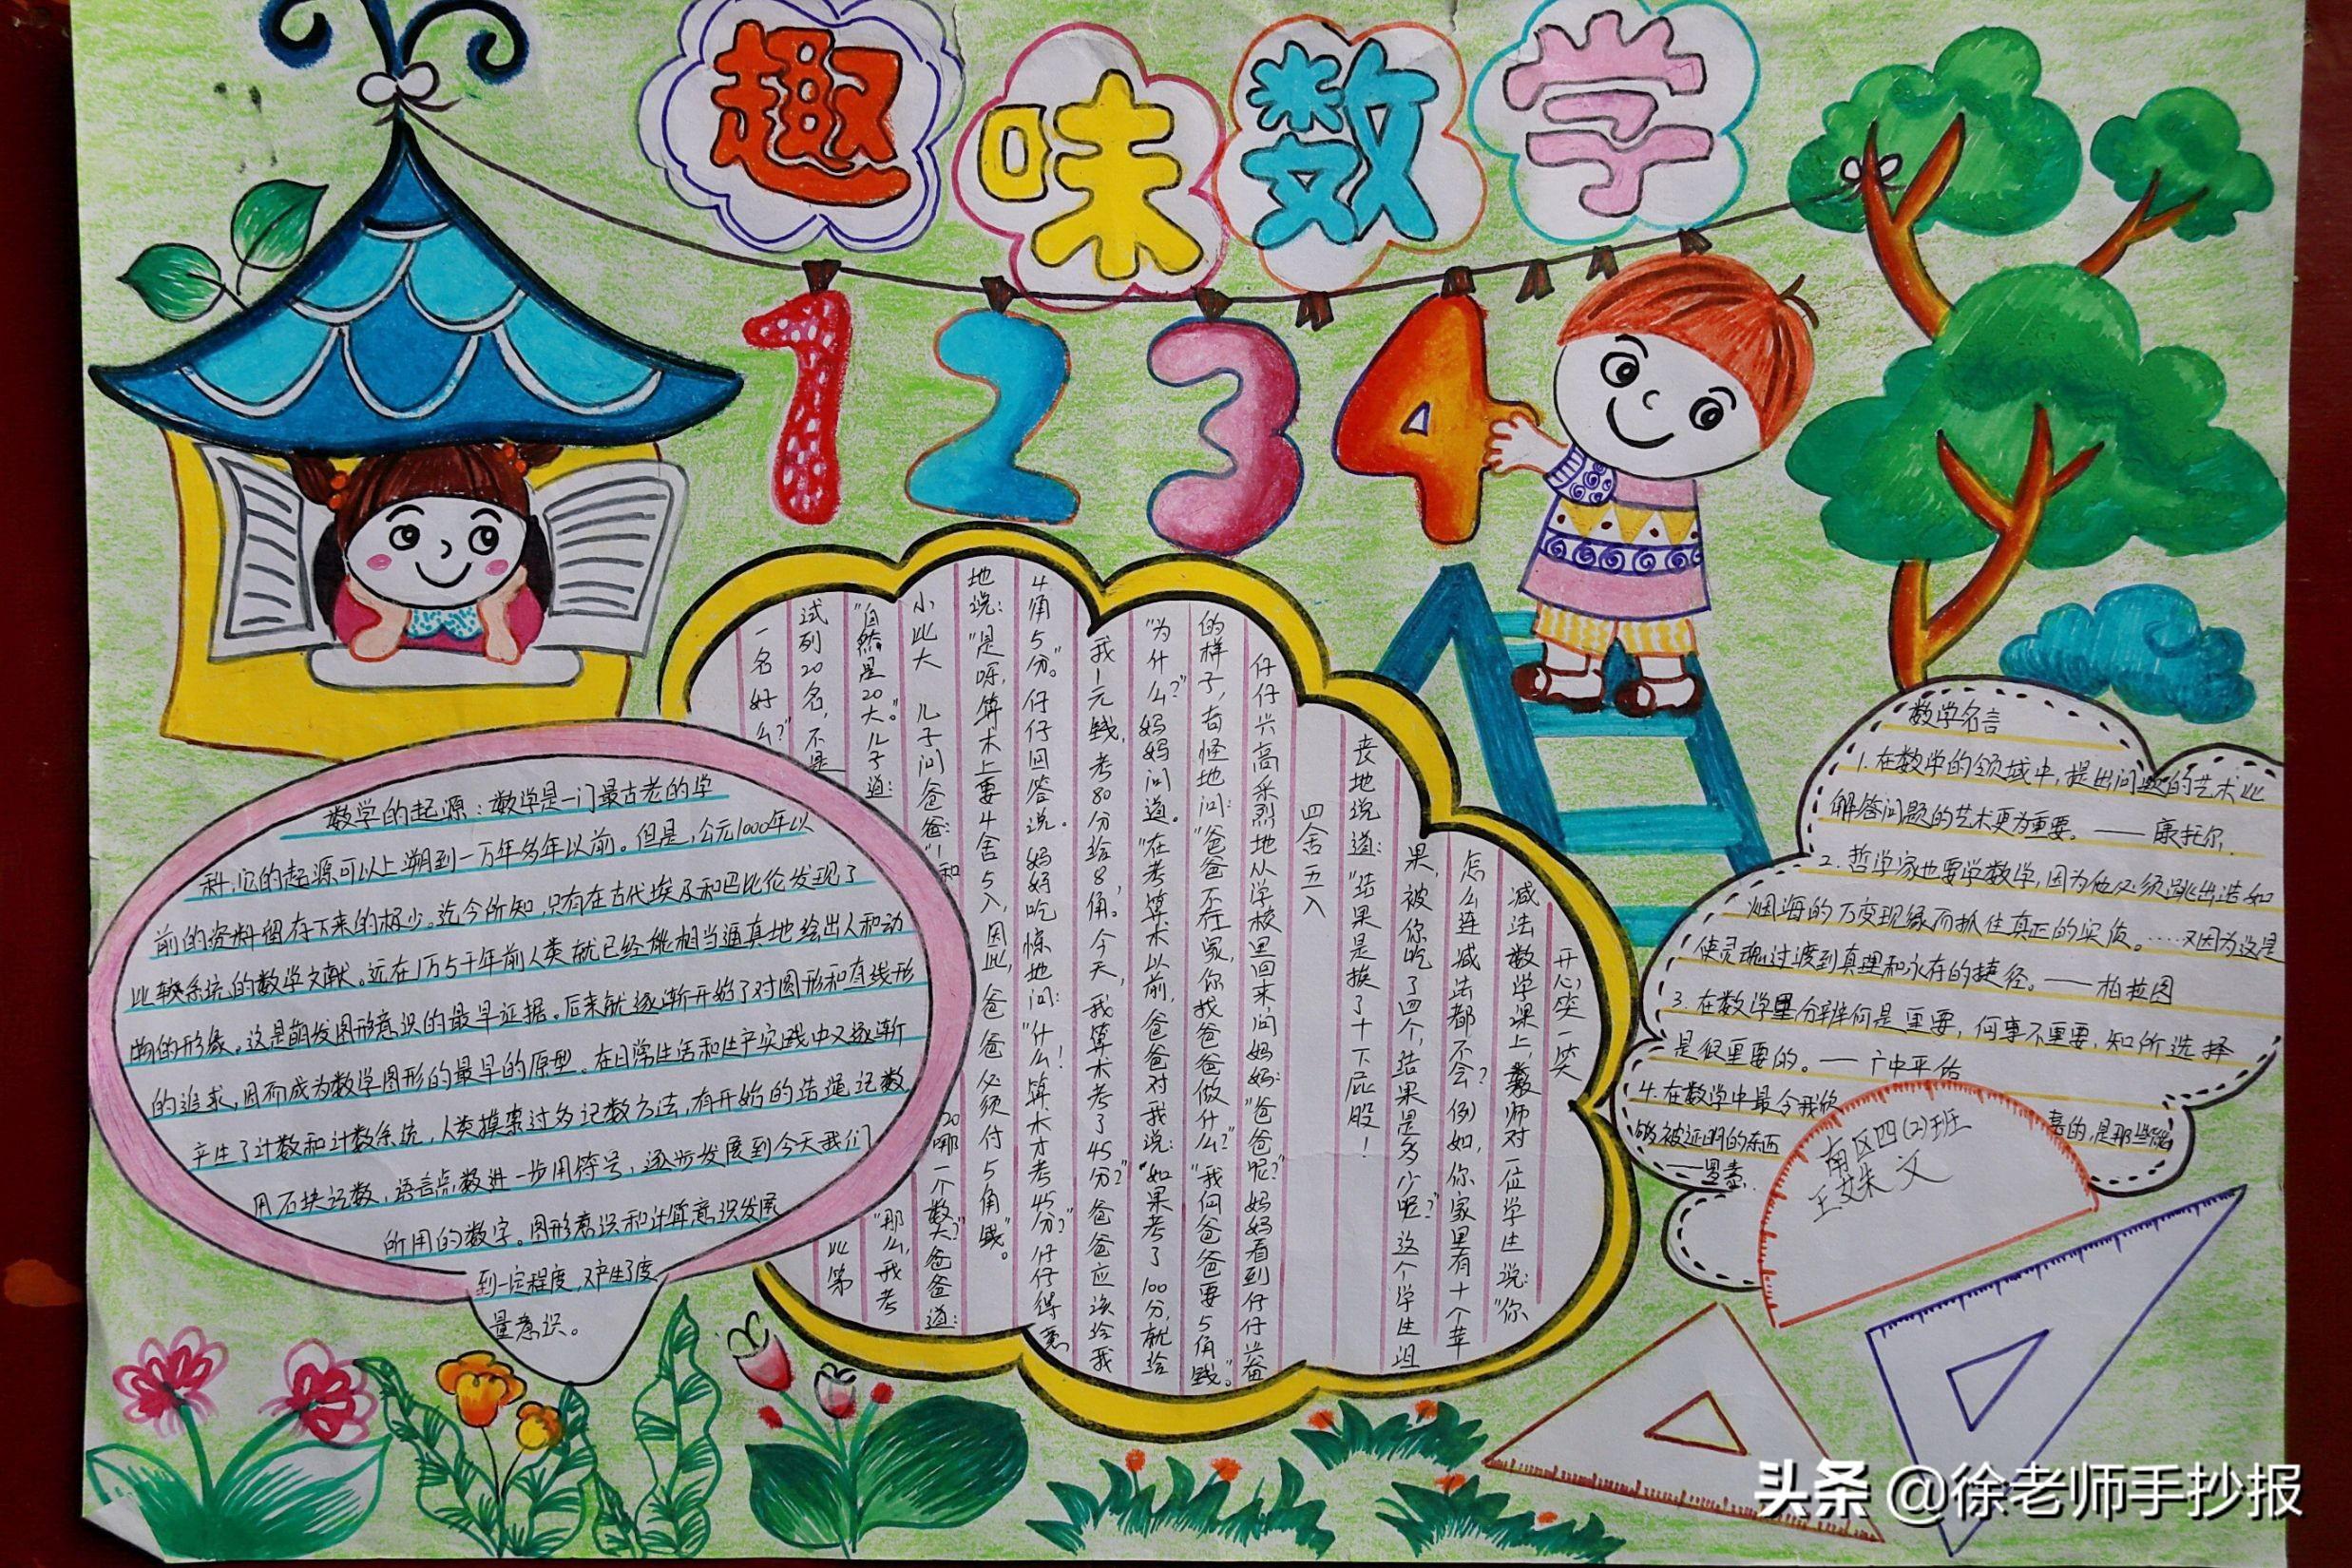 趣味数学
1 2 3 4
数学的起源：数学是一门最古老的学
科，它的起源可以上溯到一万年多年以前。但是，公元1000年以
前的资料留存下来的极少。迄今所知，只有在古代埃及和巴比伦发现了
比较系统的数学文献。远在1万5千年前人类就已经能相当逼真地绘出人和动
物的形象。这是萌发图形意识的最早证据。后来就逐渐开始了对圆形和直线形
的追求，因而成为数学图形的最早的原型。在日常生活和生产实践中又逐渐
产生了计数和计数系统，人类摸索过多记数方法，有开始的结绳记数，
用石块记数，语言点数进一步用符号，逐步发展到今天我们
所用的数字。图形意识和计算意识发展
到一定程度，又产生了度
量意识。
开心笑一笑
减法数学课上，教师对一位学生说：“你
怎么连减法都不会？例如，你家里有十个苹
果，被你吃了四个，结果是多少呢？”这个学生沮
丧地说道：“结果是挨了十下屁股！
四舍五入
仔仔兴高采烈地从学校里回来，问妈妈：“爸爸呢？”妈妈看到仔仔兴奋
的样子，奇怪地问：“爸爸不在家，你找爸爸做什么？”“我问爸爸要5角钱。”
“为什么？”妈妈问道。“在考算术以前，爸爸对我说：‘如果考了100分，就给
我1元钱，考80分给8角。’今天，我算术考了45分？”爸爸应该给我
4角5分。”仔仔回答说。妈妈吃惊地问：“什么！算术才考45分？”仔仔得意
地说：“是呀，算术上要4舍5入，因此，爸爸必须付5角钱”。
小比大 儿子问爸爸：“1和20哪一个数大？”爸爸道：
“自然是20大。”儿子道：“那么，我考
试列20名，不是比第
一名好么？”
数学名言
1.在数学的领域中，提出问题的艺术比
解答问题的艺术更为重要。——康托尔.
2.哲学家也要学数学，因为他必须跳出浩如
烟海的万变现象而抓住真正的实质。……又因为这是
使灵魂过渡到真理和永存的捷径。——柏拉图
3.在数学里分辨何是重要，何事不重要，知所选择
是很重要的。——广中平佑
4.在数学中最令我欣喜的，是那些能
够被证明的东西
——罗素.
南区四(2)班
王姝文
头条 @徐老师手抄报